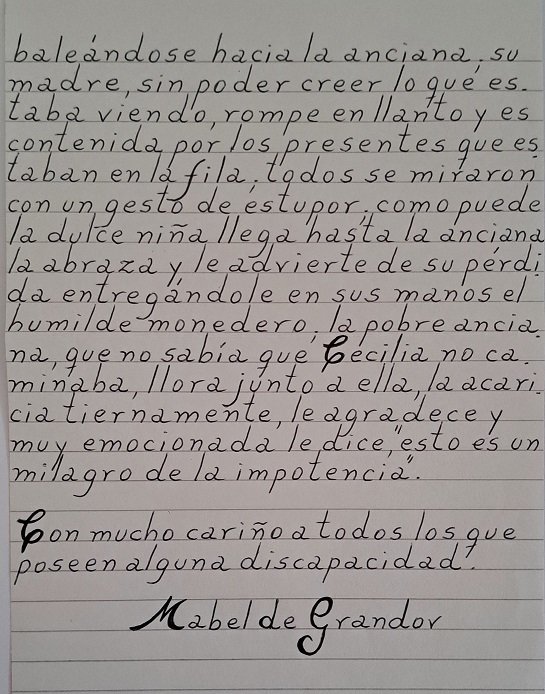 baleándose hacia la anciana, su
madre, sin poder creer lo que es.
taba viendo, rompe en llanto y es
contenida por los presentes que es
taban en la fila, todos se miraron
con un gesto de estupor, como puede
la dulce niña llega hasta la anciana
la abraza y le advierte de su pérdi
da entregándole en sus manos el
humilde monedero, la pobre ancia.
na, que no sabía que Cecilia no ca.
minaba, llora junto a ella, la acari.
cia tiernamente, le agradece y
muy emocionada le dice, "esto es un
milagro de la impotencia".
Con mucho cariño a todos los que
poseen alguna discapacidad".
Mabel de Grandov